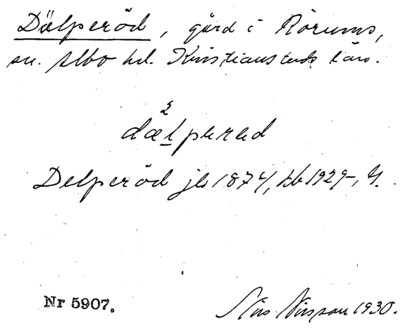 Dälperöd, gård i Rörums,
sn. Albo hd. Kristianstads län.
2
dælperad
Delperöd jb 1874, kb 1929-, G.
Nr 5907.
Nilsson 1930.